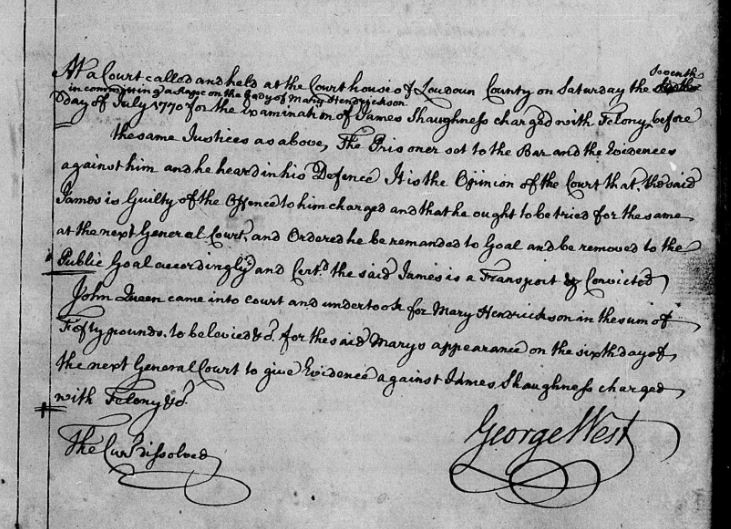 At a Court called and held at the Courthouse of Loudoun County on Saturday the Seventh
in committing a Rape on the Body of Mary Hendrickson
Day of July 1770 for the Examination of James Shaughness charged with Felony before
the same Justices as above, The Prisoner set to the Bar and the Evidences
against him and he heard in his Defence It is the Opinion of the Court that, the said
James is Guilty of the Offence to him charged and that he ought to be tried for the same
at the next General Court, and Ordered he be remanded to Goal and be removed to the
Public Goal accordingly and Cert.d the said James is a Transport & Convicted
John Queen came into court and undertook for Mary Hendrickson in the sum of
Fifty pounds. to be levied &c. for the said Marys appearance on the sixth day of
the next General Court to give Evidence against James Shaughness charged
with Felony &c.
The Court Dissolved
George West